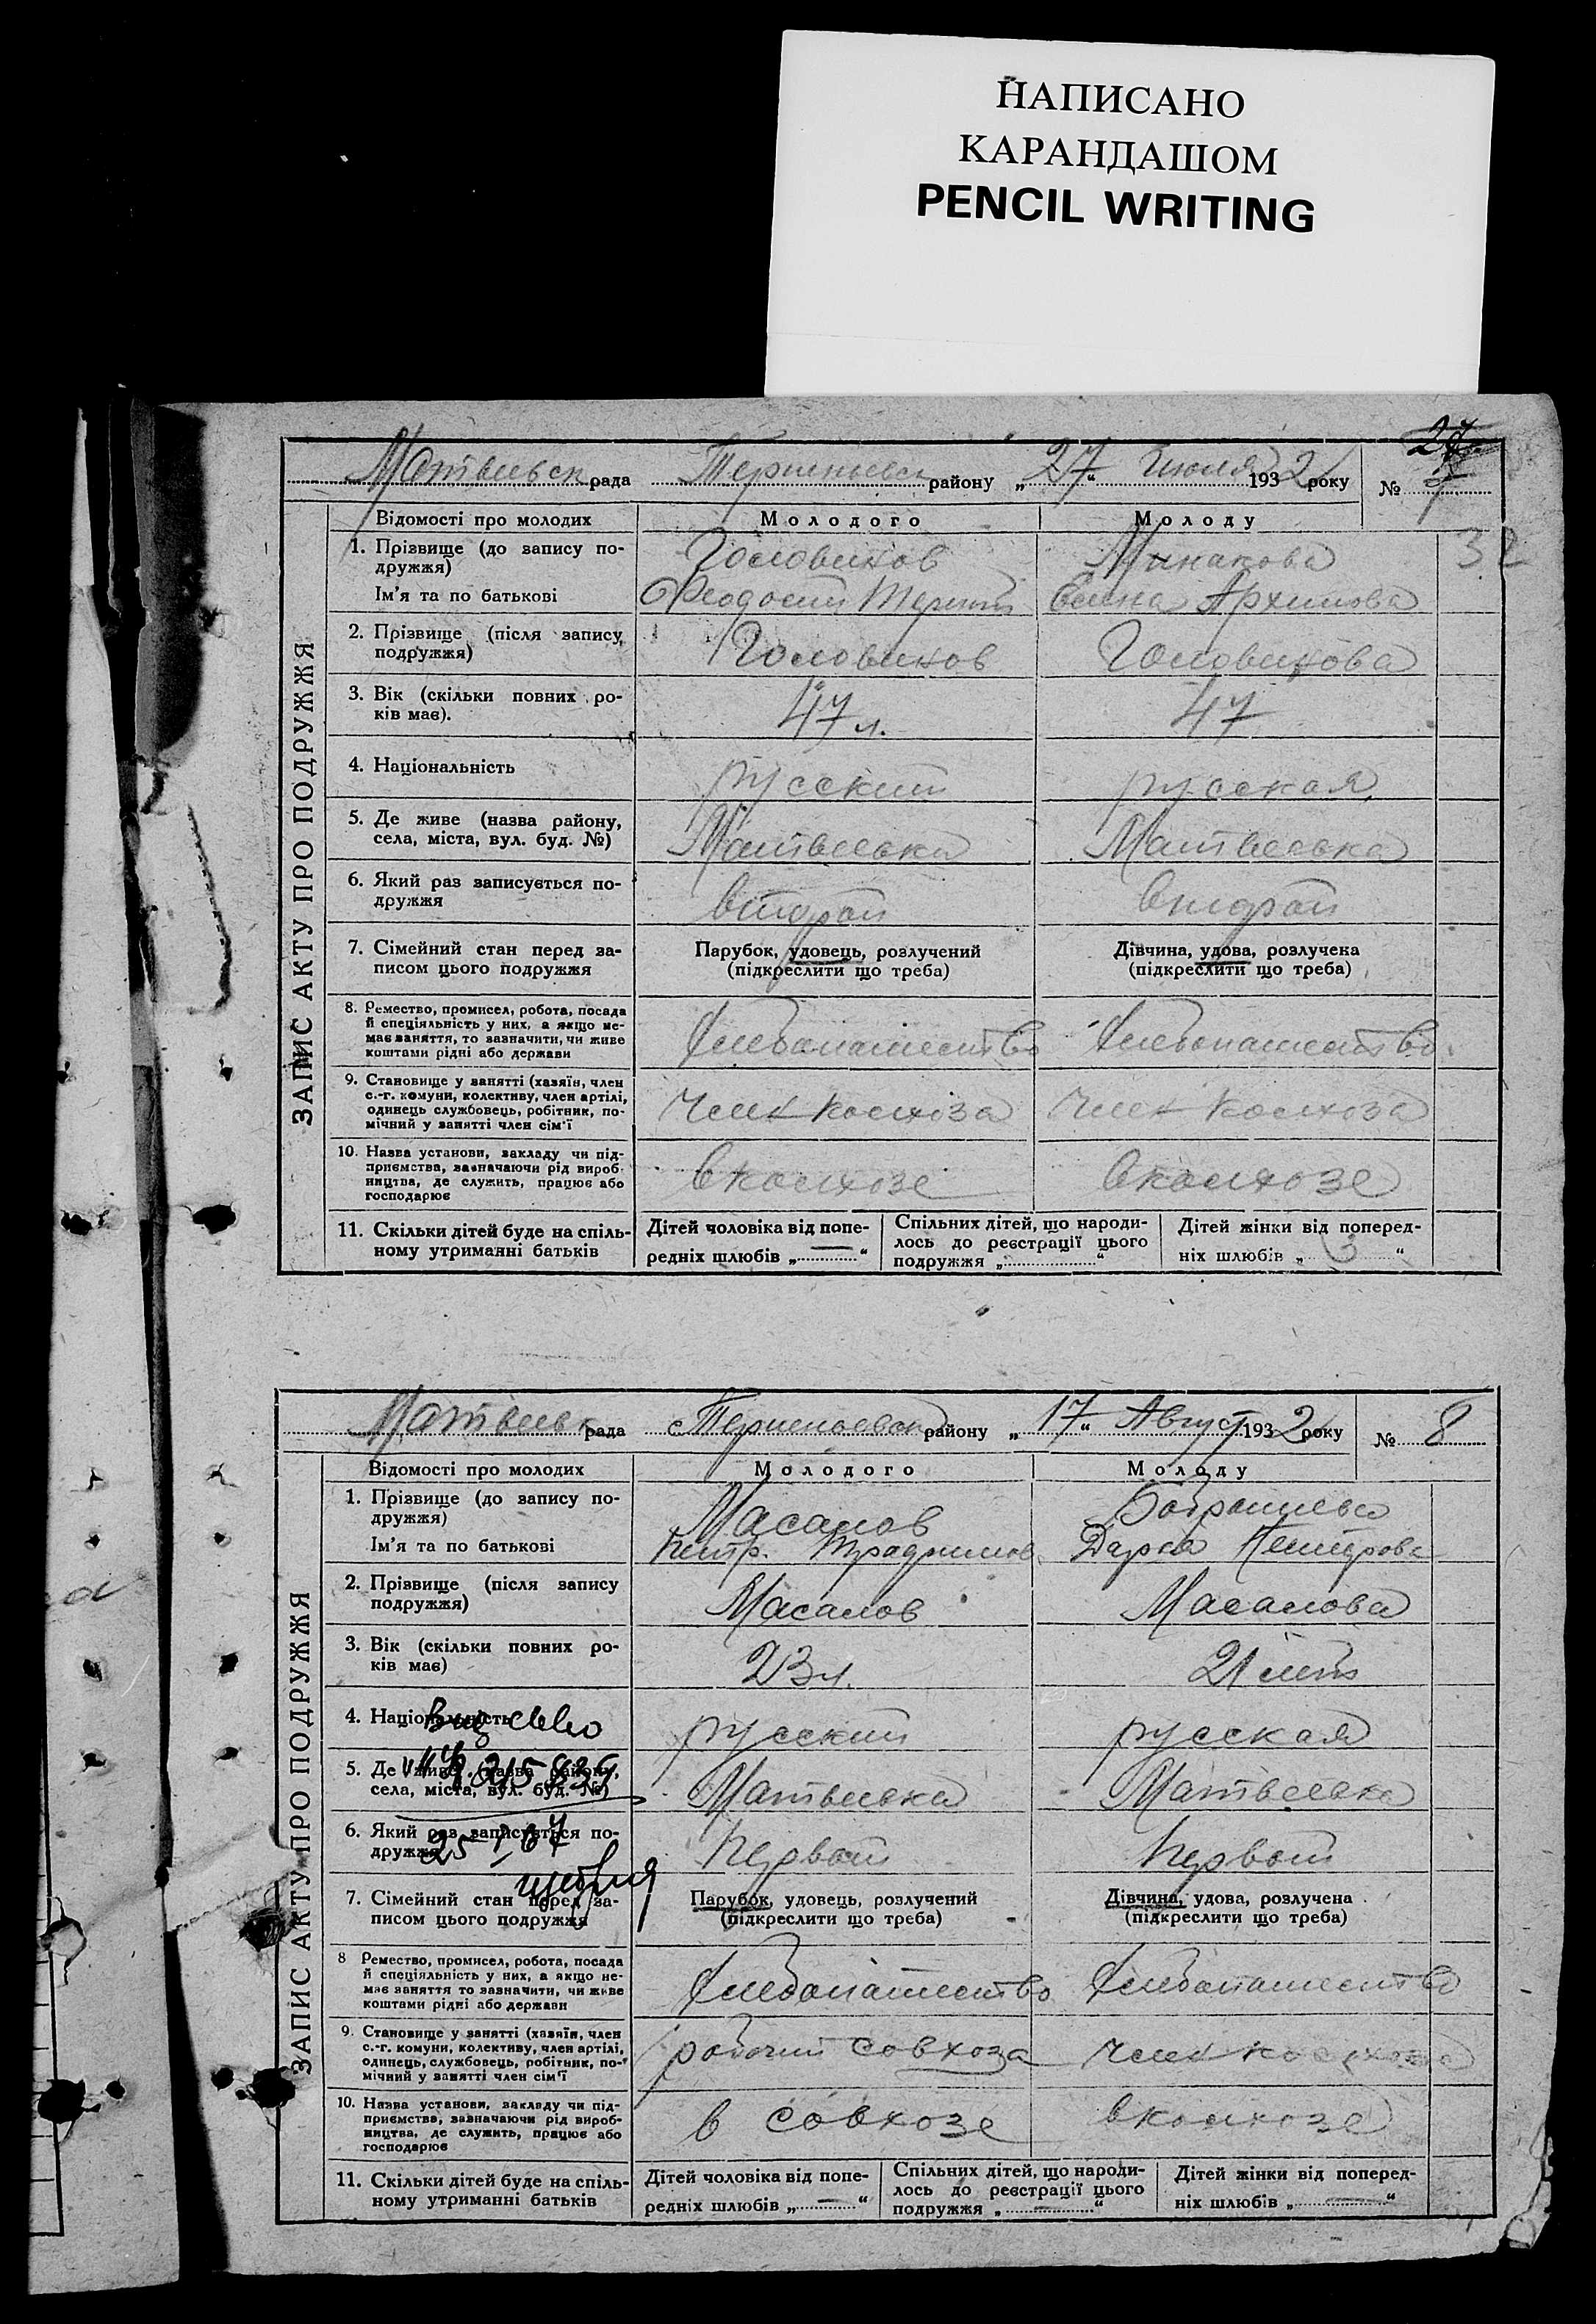 НАПИСАНО
КАРАНДАШОМ
PENCIL WRITING
27
Матвievск рада Терпеньевск району „27“ Июля 1932 року № 7
Відомості про молодих Молодого Молоду
32
1. Прізвище (до запису по-
дружжя) Головинов Минакова
Ім'я та по батькові Феодосий Терент Елена Архипова
2. Прізвище (після запису
подружжя) Головинов Головинова
3. Вік (скільки повних ро-
ків має). 47 л. 47
4. Національність русский русская
5. Де живе (назва району,
села, міста, вул. буд. №) Матвеевка Матвеевка
6. Який раз записується по-
дружжя второй второй
7. Сімейний стан перед за- Парубок, удовець, розлучений Дівчина, удова, розлучена
писом цього подружжя (підкреслити що треба) (підкреслити що треба)
8. Ремество, промисел, робота, посада
й спеціяльність у них, а якщо не-
має заняття, то зазначити, чи живе
коштами рідні або держави Хлебопашество Хлебопашество
9. Становище у занятті (хазяїн, член
с.-г. комуни, колективу, член артілі,
одинець службовець, робітник, по-
мічний у занятті член сім'ї член колхоза член колхоза
10. Назва установи, закладу чи під-
приємства, зазначаючи рід вироб-
ництва, де служить, працює або
господарює в колхозе в колхозе
11. Скільки дітей буде на спіль-
ному утриманні батьків Дітей чоловіка від попе-
редніх шлюбів „ — “ Спільних дітей, що народи-
лось до реєстрації цього
подружжя „ “ Дітей жінки від поперед-
ніх шлюбів „ 3 “
ЗАПИС АКТУ ПРО ПОДРУЖЖЯ
Матвеевк рада Терпеньевск району „17“ Август 1932 року № 8
Відомості про молодих Молодого Молоду
1. Прізвище (до запису по-
дружжя) Масалов
Ім'я та по батькові Петр. Дарья Петрова
2. Прізвище (після запису
подружжя) Масалов Масалова
3. Вік (скільки повних ро-
ків має) 23 л. 21 лет
4. Національність русский русская
5. Де живе (назва району,
села, міста, вул. буд. №) Матвеевка Матвеевка
6. Який раз записується по-
дружжя первый первый
7. Сімейний стан перед за- Парубок, удовець, розлучений Дівчина, удова, розлучена
писом цього подружжя (підкреслити що треба) (підкреслити що треба)
8 Ремество, промисел, робота, посада
й спеціяльність у них, а якщо не-
має заняття то зазначити, чи живе
коштами рідні або держави Хлебопашество Хлебопашество
9. Становище у занятті (хазяїн, член
с.-г. комуни, колективу, член артілі,
одинець, службовець, робітник, по-
мічний у занятті член сім'ї рабочий совхоза член колхоза
10. Назва установи, закладу чи під-
приємства, зазначаючи рід вироб-
ництва, де служить, працює або
господарює в совхозе в колхозе
11. Скільки дітей буде на спіль-
ному утриманні батьків Дітей чоловіка від попе-
редніх шлюбів „ — “ Спільних дітей, що народи-
лось до реєстрації цього
подружжя „ — “ Дітей жінки від поперед-
ніх шлюбів „ — “
ЗАПИС АКТУ ПРО ПОДРУЖЖЯ